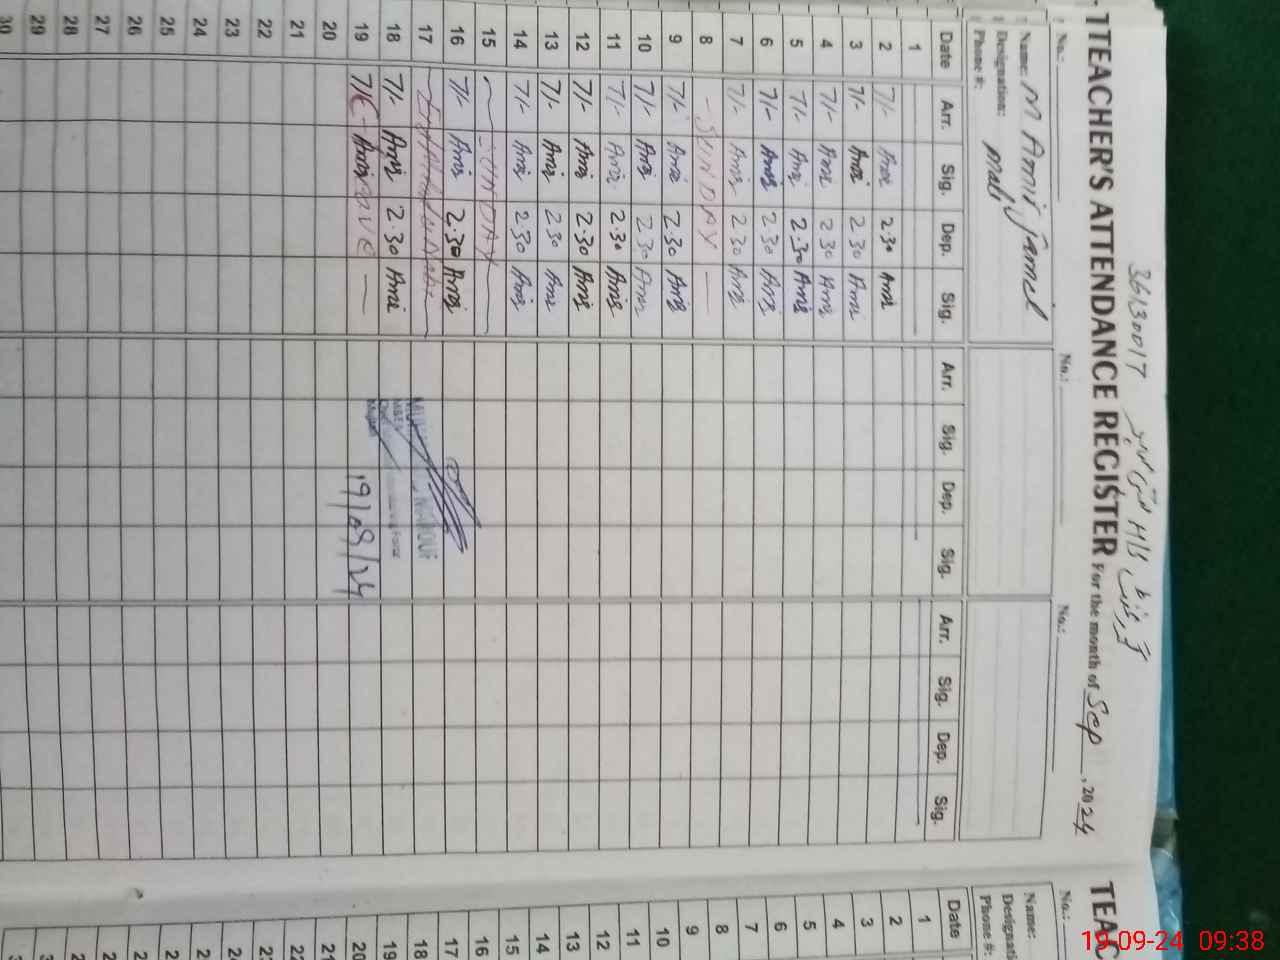 36130017
TEACHER'S ATTENDANCE REGISTER For the month of Sep, 2024
No.: No.: No.:
Name: M Amir Jamel
Designation: mali
Phone #:
Date Arr. Sig. Dep. Sig. Arr. Sig. Dep. Sig. Arr. Sig. Dep. Sig.
1
2 7/- Amir 2.30 Amir
3 7/- Amir 2 30 Amir
4 7/- Amir 2 30 Amir
5 7/- Amir 2.30 Amir
6 7/- Amir 2 30 Amir
7 7/- Amir 2 30 Amir
8 — SUNDAY —
9 7/- Amir 2.30 Amir
10 7/- Amir 2 30 Amir
11 7/- Amir 2.30 Amir
12 7/- Amir 2.30 Amir
13 7/- Amir 2 30 Amir
14 7/- Amir 2.30 Amir
15 SUNDAY
16 7/- Amir 2.30 Amir
17
18 7/- Amir 2.30 Amir
19 Amir
19/09/24
20
21
22
23
24
25
26
27
28
29
30
TEAC
No.:
Name:
Designati
Phone #:
Date
1
2
3
4
5
6
7
8
9
10
11
12
13
14
15
16
17
18
19
20
21
19-09-24 09:38